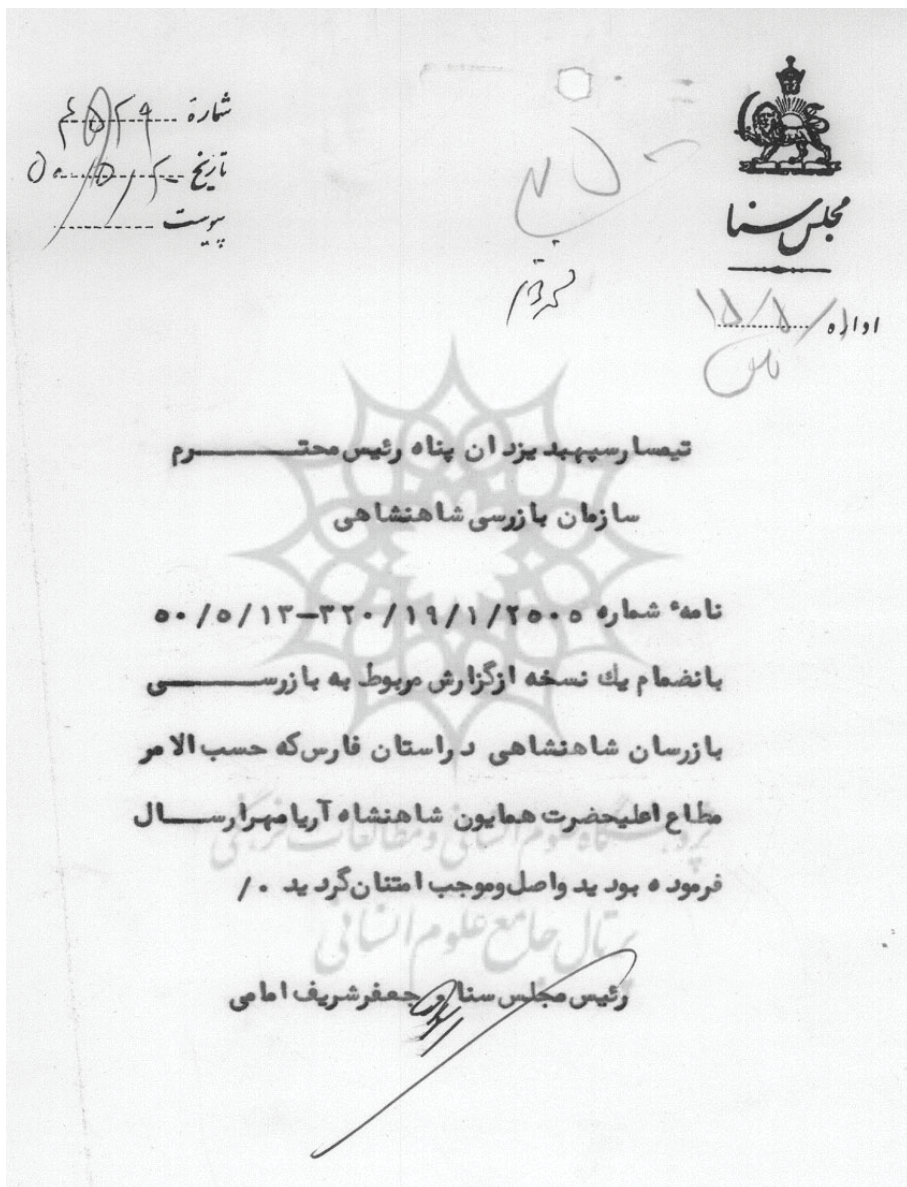 مجلس سنا
شمارهٔ
تاریخ
پیوست
اداره
تیمسارسپهبد یزدان پناه رئیس محتـــــــرم
سازمان بازرسی شاهنشاهی
نامهٔ شماره ۲۵۰۵/۱/۱۹/۳۲۰-۵۰/۵/۱۳
بانضمام یك نسخه ازگزارش مربوط به بازرســـــــی
بازرسان شاهنشاهی دراستان فارس که حسب الامر
مطاع اعلیحضرت همایون شاهنشاه آریامهرارســـال
فرموده بودید واصل وموجب امتنان گردید ./
رئیس مجلس سنا جعفرشریف امامی
پژوهشگاه علوم انسانی و مطالعات فرهنگی
پرتال جامع علوم انسانی